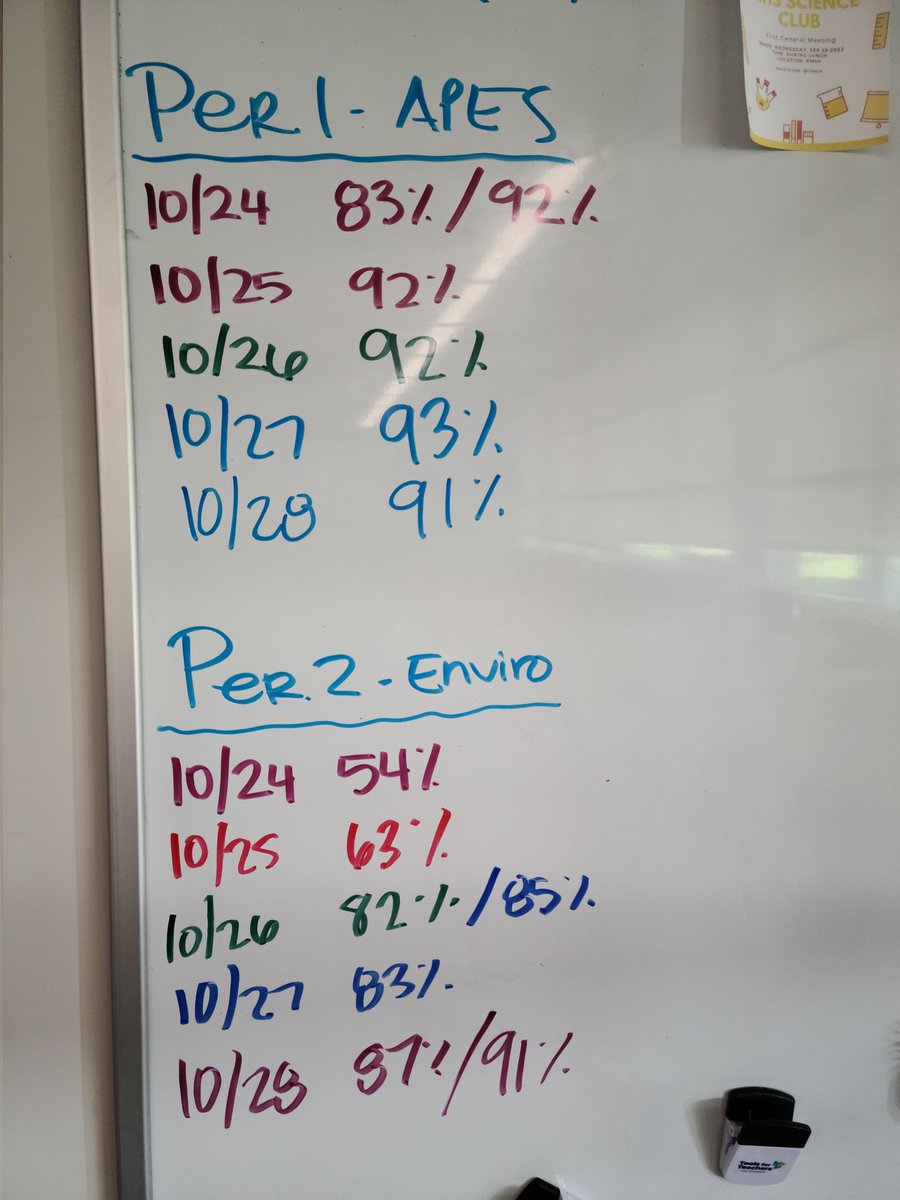 SCIENCE
CLUB
First General Meeting
Per 1 - APES
10/24 83% / 92%
10/25 92%
10/26 92%
10/27 93%
10/28 91%
Per. 2 - Enviro
10/24 54%
10/25 63%
10/26 82% / 85%
10/27 83%
10/28 87% / 91%
Tools for
Teachers